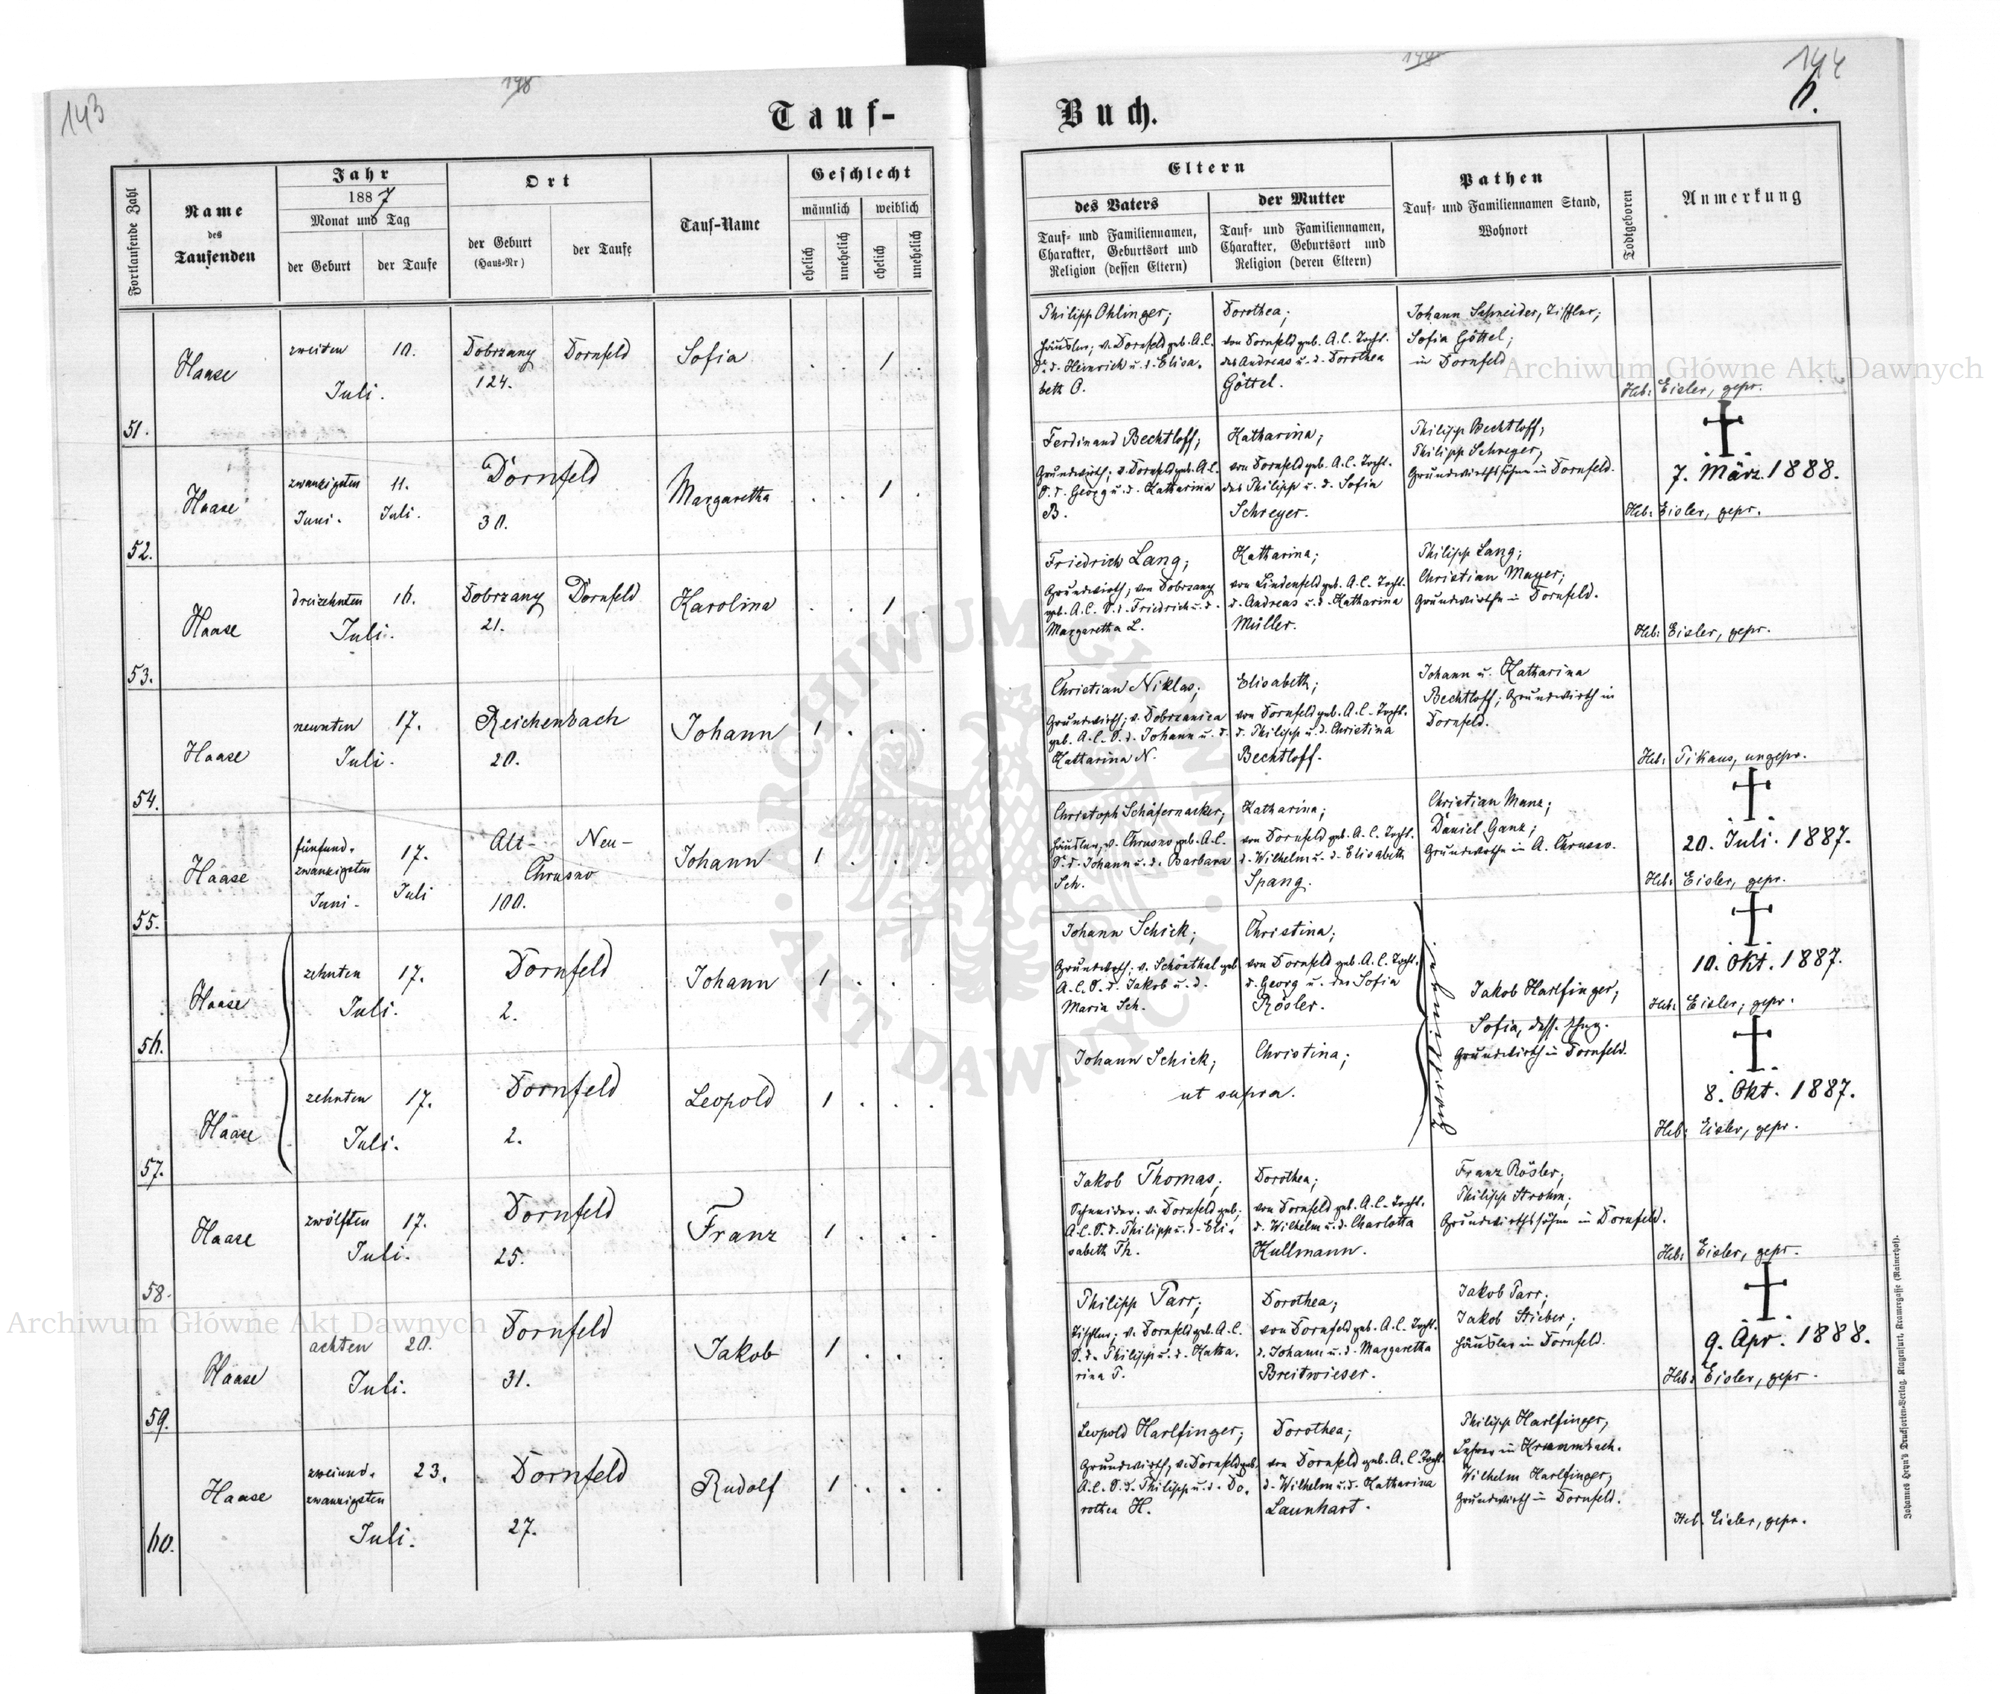 143
148
Tauf-
Fortlaufende Zahl
Name
des
Taufenden
Jahr
1887
Monat und Tag
der Geburt
der Taufe
Ort
der Geburt
(Haus-Nr)
der Taufe
Tauf-Name
Geschlecht
männlich
weiblich
ehelich
unehelich
ehelich
unehelich
51.
Haase
zweiten 10.
Juli.
Dobrzany Dornfeld
124.
Sofia
. . 1 .
52.
Haase
zwanzigsten 11.
Juni. Juli.
Dornfeld
30.
Margaretha
. . 1 .
53.
Haase
dreizehnten 16.
Juli.
Dobrzany Dornfeld
21.
Karolina
. . 1 .
54.
Haase
neunten 17.
Juli.
Reichenbach
20.
Johann
1 . . .
55.
Haase
fünfund-
zwanzigsten 17.
Juni. Juli
Alt- Neu-
Chrusno
100.
Johann
1 . . .
56.
Haase
zehnten 17.
Juli.
Dornfeld
2.
Johann
1 . . .
57.
Haase
zehnten 17.
Juli.
Dornfeld
2.
Leopold
1 . . .
58.
Haase
zwölften 17.
Juli.
Dornfeld
25.
Franz
1 . . .
59.
Haase
achten 20.
Juli.
Dornfeld
31.
Jakob
1 . . .
60.
Haase
zweiund-
zwanzigsten 23.
Juli.
Dornfeld
27.
Rudolf
1 . . .
148
144
6.
Buch.
Eltern
des Vaters
Tauf- und Familiennamen,
Charakter, Geburtsort und
Religion (dessen Eltern)
der Mutter
Tauf- und Familiennamen,
Charakter, Geburtsort und
Religion (deren Eltern)
Pathen
Tauf- und Familiennamen Stand,
Wohnort
Todtgeboren
Anmerkung
Philipp Ohlinger;
Häusler; v. Dornfeld geb. A.C.
S. d. Heinrich u. d. Elisa-
beth O.
Dorothea;
von Dornfeld geb. A.C. Tocht.
des Andreas u. d. Dorothea
Göttel.
Johann Schneider, Tischler;
Sofia Göttel;
in Dornfeld
Heb: Eisler, gepr.
Ferdinand Bechtloff;
Grundwirth; v. Dornfeld geb. A.C.
S. d. Georg u. d. Katharina
B.
Katharina;
von Dornfeld geb. A.C. Tocht.
des Philipp u. d. Sofia
Schreyer.
Philipp Bechtloff;
Philipp Schreyer,
Grundwirthssöhne in Dornfeld.
7. März 1888.
Heb: Eisler, gepr.
Friedrich Lang;
Grundwirth; von Dobrzany
geb. A.C. S. d. Friedrich u. d.
Margaretha L.
Katharina;
von Lindenfeld geb. A.C. Tocht.
d. Andreas u. d. Katharina
Müller.
Philipp Lang;
Christian Mayer;
Grundwirthe in Dornfeld.
Heb: Eisler, gepr.
Christian Niklas;
Grundwirth; v. Dobrzanica
geb. A.C. S. d. Johann u. d.
Katharina N.
Elisabeth;
von Dornfeld geb. A.C. Tocht.
d. Philipp u. d. Christina
Bechtloff.
Johann u. Katharina
Bechtloff; Grundwirth in
Dornfeld.
Heb: Pikaus, ungepr.
Christoph Schäfernacker;
Häusler, v. Chrusno geb. A.C.
S. d. Johann u. d. Barbara
Sch.
Katharina;
von Dornfeld geb. A.C. Tocht.
d. Wilhelm u. d. Elisabeth
Spang.
Christian Manz;
Daniel Ganz;
Grundwirthe in A. Chrusno.
20. Juli. 1887.
Heb: Eisler, gepr.
Johann Schick;
Grundwirth; v. Schönthal geb.
A.C. S. d. Jakob u. d.
Maria Sch.
Christina;
von Dornfeld geb. A.C. Tocht.
d. Georg u. der Sofia
Rösler.
Jakob Harlfinger;
Sofia, dess. Eheg.
Grundwirth in Dornfeld.
10. Okt. 1887.
Heb: Eisler, gepr.
Johann Schick;
Christina;
ut supra.
8. Okt. 1887.
Heb: Eisler, gepr.
Jakob Thomas;
Schneider. v. Dornfeld geb.
A.C. S. d. Philipp u. d. Eli-
sabeth Th.
Dorothea;
von Dornfeld geb. A.C. Tocht.
d. Wilhelm u. d. Charlotta
Kullmann.
Franz Rösler;
Philipp Strohm;
Grundwirthssöhne in Dornfeld.
Heb: Eisler, gepr.
Philipp Parr;
Tischler; v. Dornfeld geb. A.C.
S. d. Philipp u. d. Katha-
rina P.
Dorothea;
von Dornfeld geb. A.C. Tocht.
d. Johann u. d. Margaretha
Breitwieser.
Jakob Parr;
Jakob Stieber;
Häusler in Dornfeld.
9. Apr. 1888.
Heb: Eisler, gepr.
Leopold Harlfinger;
Grundwirth; v. Dornfeld geb.
A.C. S. d. Philipp u. d. Do-
rothea H.
Dorothea;
von Dornfeld geb. A.C. Tocht.
d. Wilhelm u. d. Katharina
Launhart.
Philipp Harlfinger,
Lehrer in
Wilhelm Harlfinger,
Grundwirth in Dornfeld.
Heb. Eisler, gepr.
Johannes Heyn's Drucksorten-Verlag, Klagenfurt, Kramergasse (Rainerhof).
Archiwum Główne Akt Dawnych
Archiwum Główne Akt Dawnych